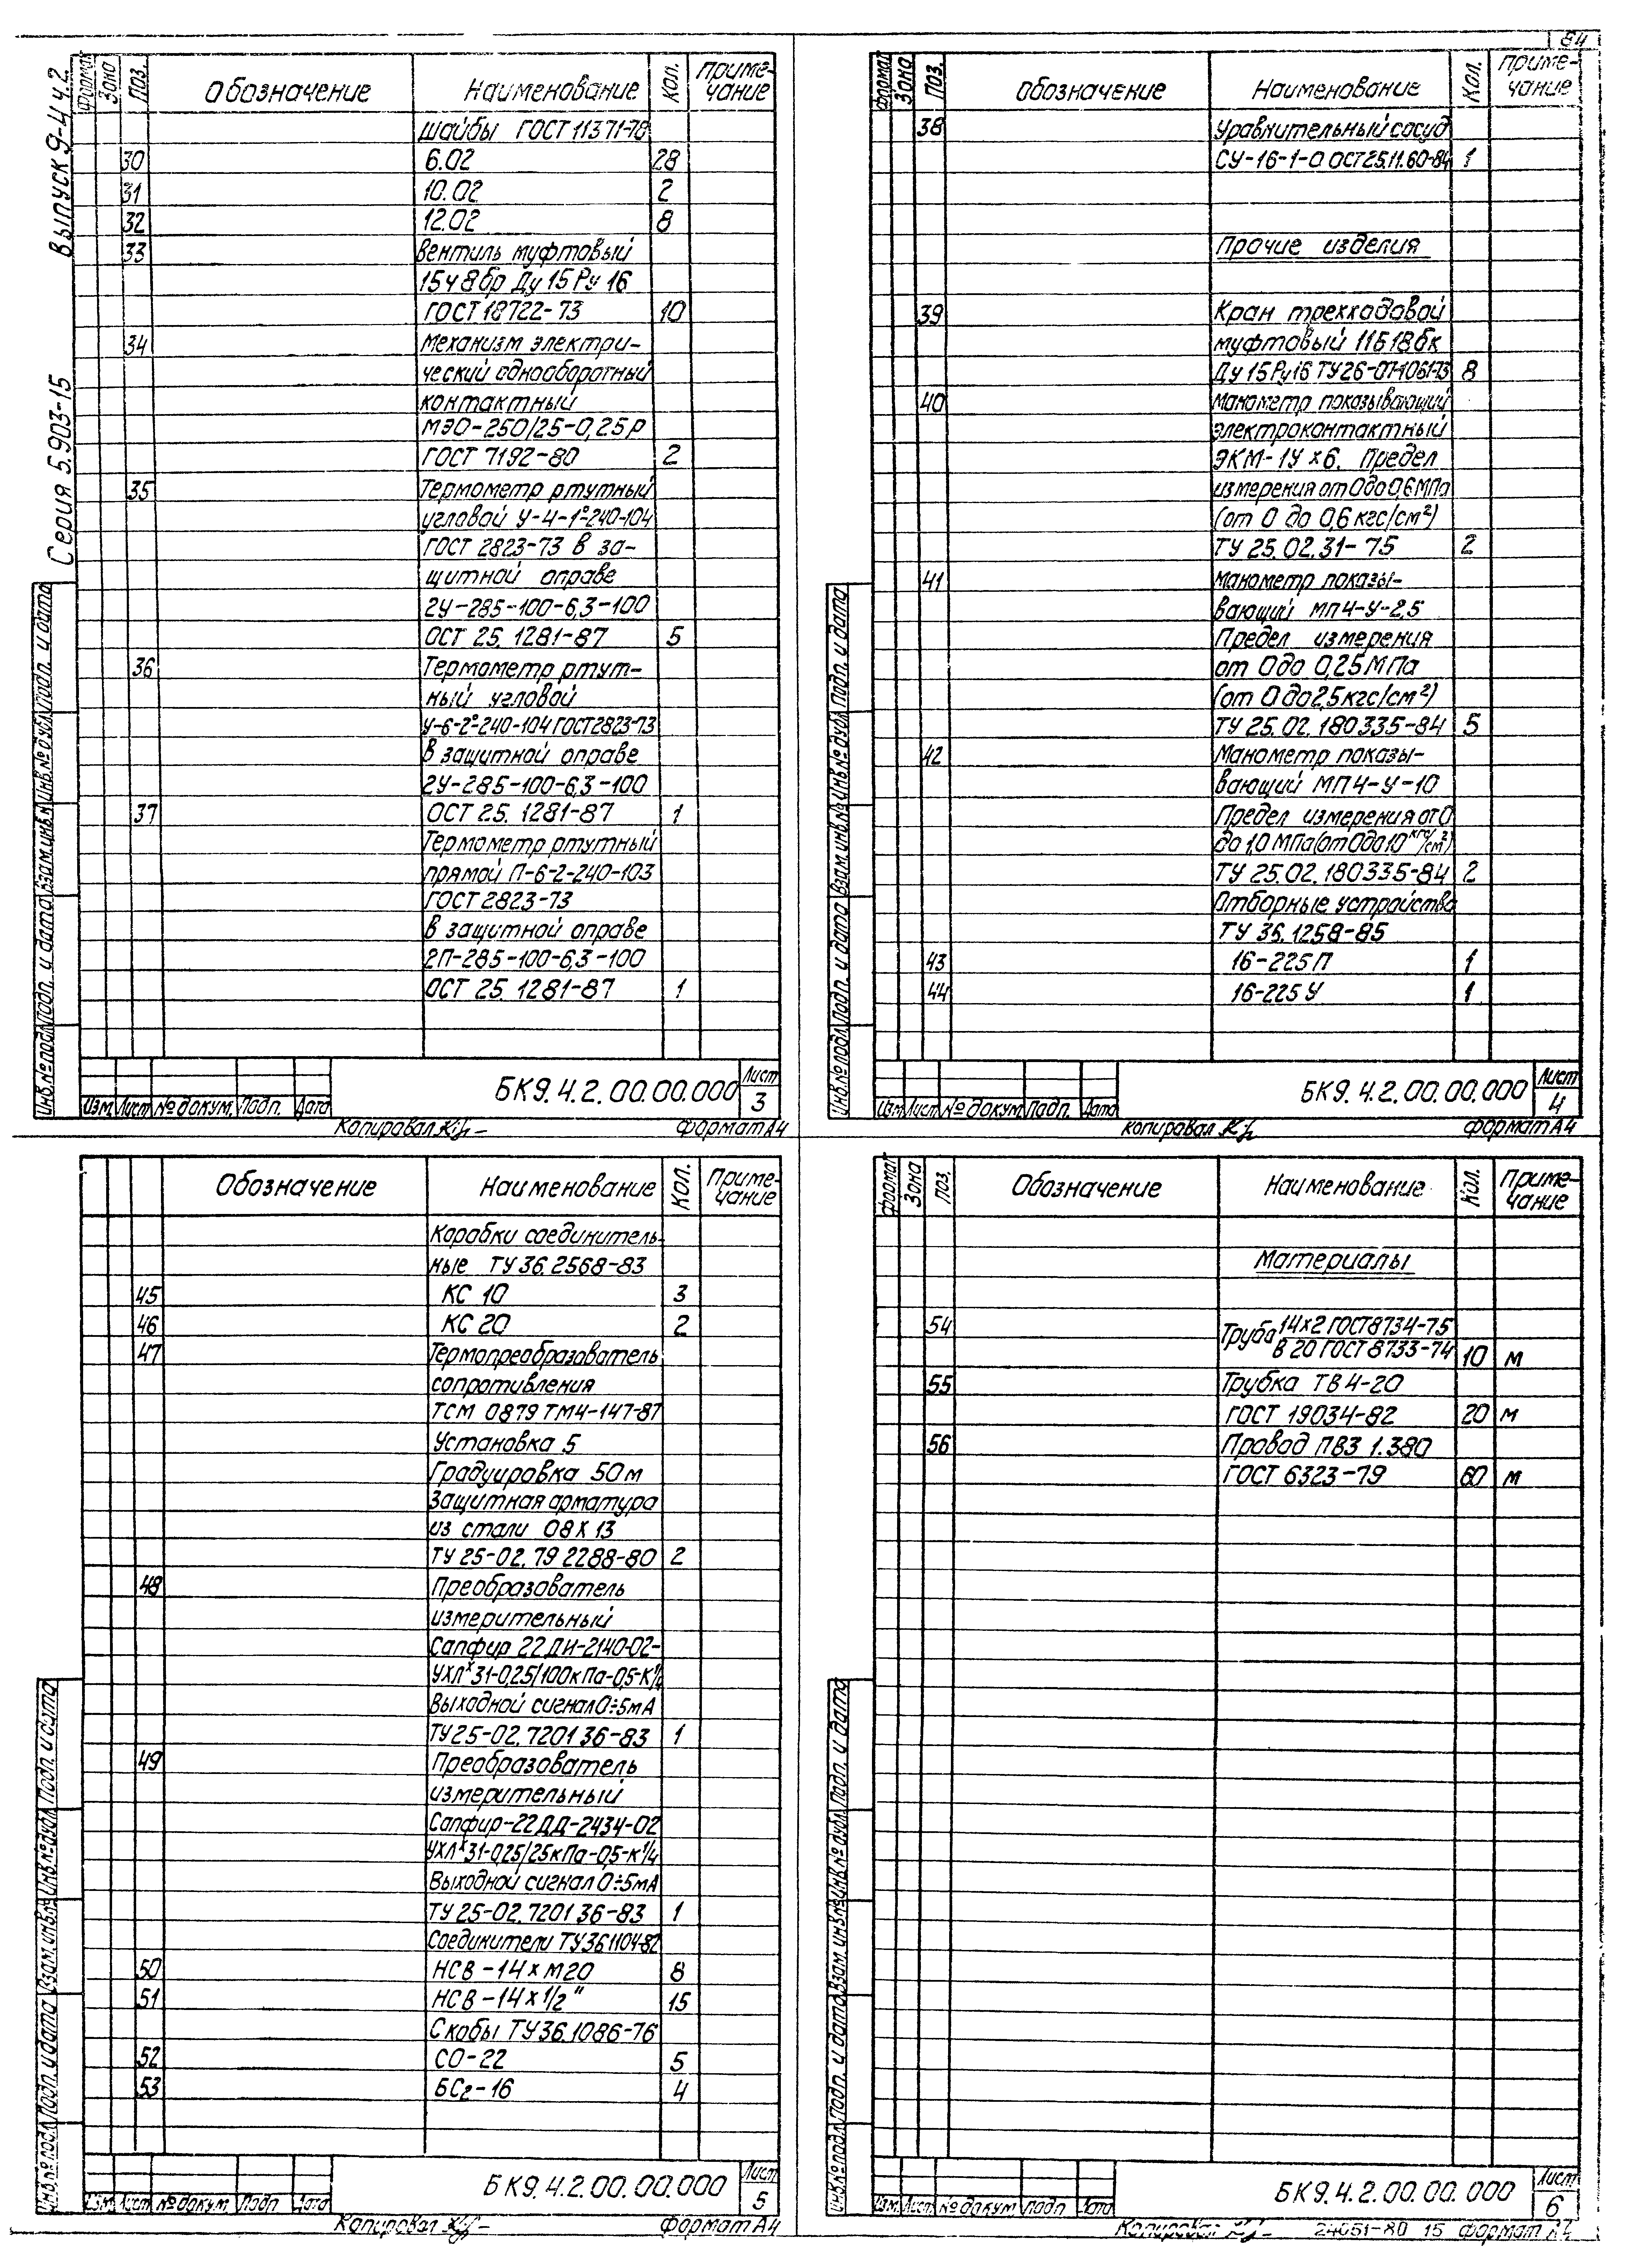 84
Серия 5.903-15 Выпуск 9-4 ч.2
Формат Зона Поз. Обозначение Наименование Кол. Примечание
Шайбы ГОСТ 11371-78
30 6.02 28
31 10.02 2
32 12.02 8
33 Вентиль муфтовый
15ч8бр Ду 15 Ру 16
ГОСТ 18722-73 10
34 Механизм электри-
ческий однооборотный
контактный
МЭО-250/25-0,25Р
ГОСТ 7192-80 2
35 Термометр ртутный
угловой У-4-1°-240-104
ГОСТ 2823-73 в за-
щитной оправе
2У-285-100-6,3-100
ОСТ 25.1281-87 5
36 Термометр ртут-
ный угловой
У-6-2°-240-104 ГОСТ 2823-73
в защитной оправе
2У-285-100-6,3-100
37 ОСТ 25.1281-87 1
Термометр ртутный
прямой П-6-2-240-103
ГОСТ 2823-73
в защитной оправе
2П-285-100-6,3-100
ОСТ 25.1281-87 1
Инв.№ подл. Подп. и дата Взам.инв.№ Инв.№ дубл. Подп. и дата
Изм. Лист № докум. Подп. Дата
БК9.4.2.00.00.000 Лист 3
Копировал Формат А4
Формат Зона Поз. Обозначение Наименование Кол. Приме-
чание
38 Уравнительный сосуд
СУ-16-1-0 ОСТ 25.11.60-84 1
Прочие изделия
39 Кран трехходовой
муфтовый 11Б18бк
Ду 15 Ру16 ТУ26-07-1061-73 8
40 Манометр показывающий
электроконтактный
ЭКМ-1У х6. Предел
измерения от 0 до 0,6 МПа
(от 0 до 0,6 кгс/см²)
ТУ 25.02.31-75 2
41 Манометр показы-
вающий МП4-У-2,5
Предел измерения
от 0 до 0,25 МПа
(от 0 до 2,5 кгс/см²)
ТУ 25.02.180335-84 5
42 Манометр показы-
вающий МП4-У-10
Предел измерения от 0
до 1,0 МПа (от 0 до 10 кгс/см²)
ТУ 25.02.180335-84 2
Отборные устройства
ТУ 36.1258-85
43 16-225П 1
44 16-225У 1
Инв.№ подл. Подп. и дата Взам.инв.№ Инв.№ дубл. Подп. и дата
Изм. Лист № докум. Подп. Дата
БК9.4.2.00.00.000 Лист 4
Копировал Формат А4
Обозначение Наименование Кол. Приме-
чание
Коробки соединитель-
ные ТУ 36.2568-83
45 КС 10 3
46 КС 20 2
47 Термопреобразователь
сопротивления
ТСМ 0879 ТМ4-147-87
Установка 5
Градуировка 50м
Защитная арматура
из стали 08Х13
ТУ 25-02.79 2288-80 2
48 Преобразователь
измерительный
Сапфир 22ДИ-2140-02-
УХЛ*31-0,25/100кПа-0,5-К1/4
Выходной сигнал 0÷5мА
ТУ 25-02.7201 36-83 1
49 Преобразователь
измерительный
Сапфир-22ДД-2434-02
УХЛ*31-0,25/25кПа-0,5-К1/4
Выходной сигнал 0÷5мА
ТУ 25-02.7201 36-83 1
Соединители ТУ36.1104-82
50 НСВ-14хМ20 8
51 НСВ-14х1/2" 15
Скобы ТУ36.1086-76
52 СО-22 5
53 БС2-16 4
Инв.№ подл. Подп. и дата Взам.инв.№ Инв.№ дубл. Подп. и дата
Изм. Лист № докум. Подп. Дата
БК9.4.2.00.00.000 Лист 5
Копировал Формат А4
Формат Зона Поз. Обозначение Наименование Кол. Приме-
чание
Материалы
54 Труба 14х2 ГОСТ 8734-75
В 20 ГОСТ 8733-74 10 м
55 Трубка ТВ4-20
ГОСТ 19034-82 20 м
56 Провод ПВ3 1.380
ГОСТ 6323-79 60 м
Инв.№ подл. Подп. и дата Взам.инв.№ Инв.№ дубл. Подп. и дата
Изм. Лист № докум. Подп. Дата
БК9.4.2.00.00.000 Лист 6
Копировал 24051-80 15 Формат А4